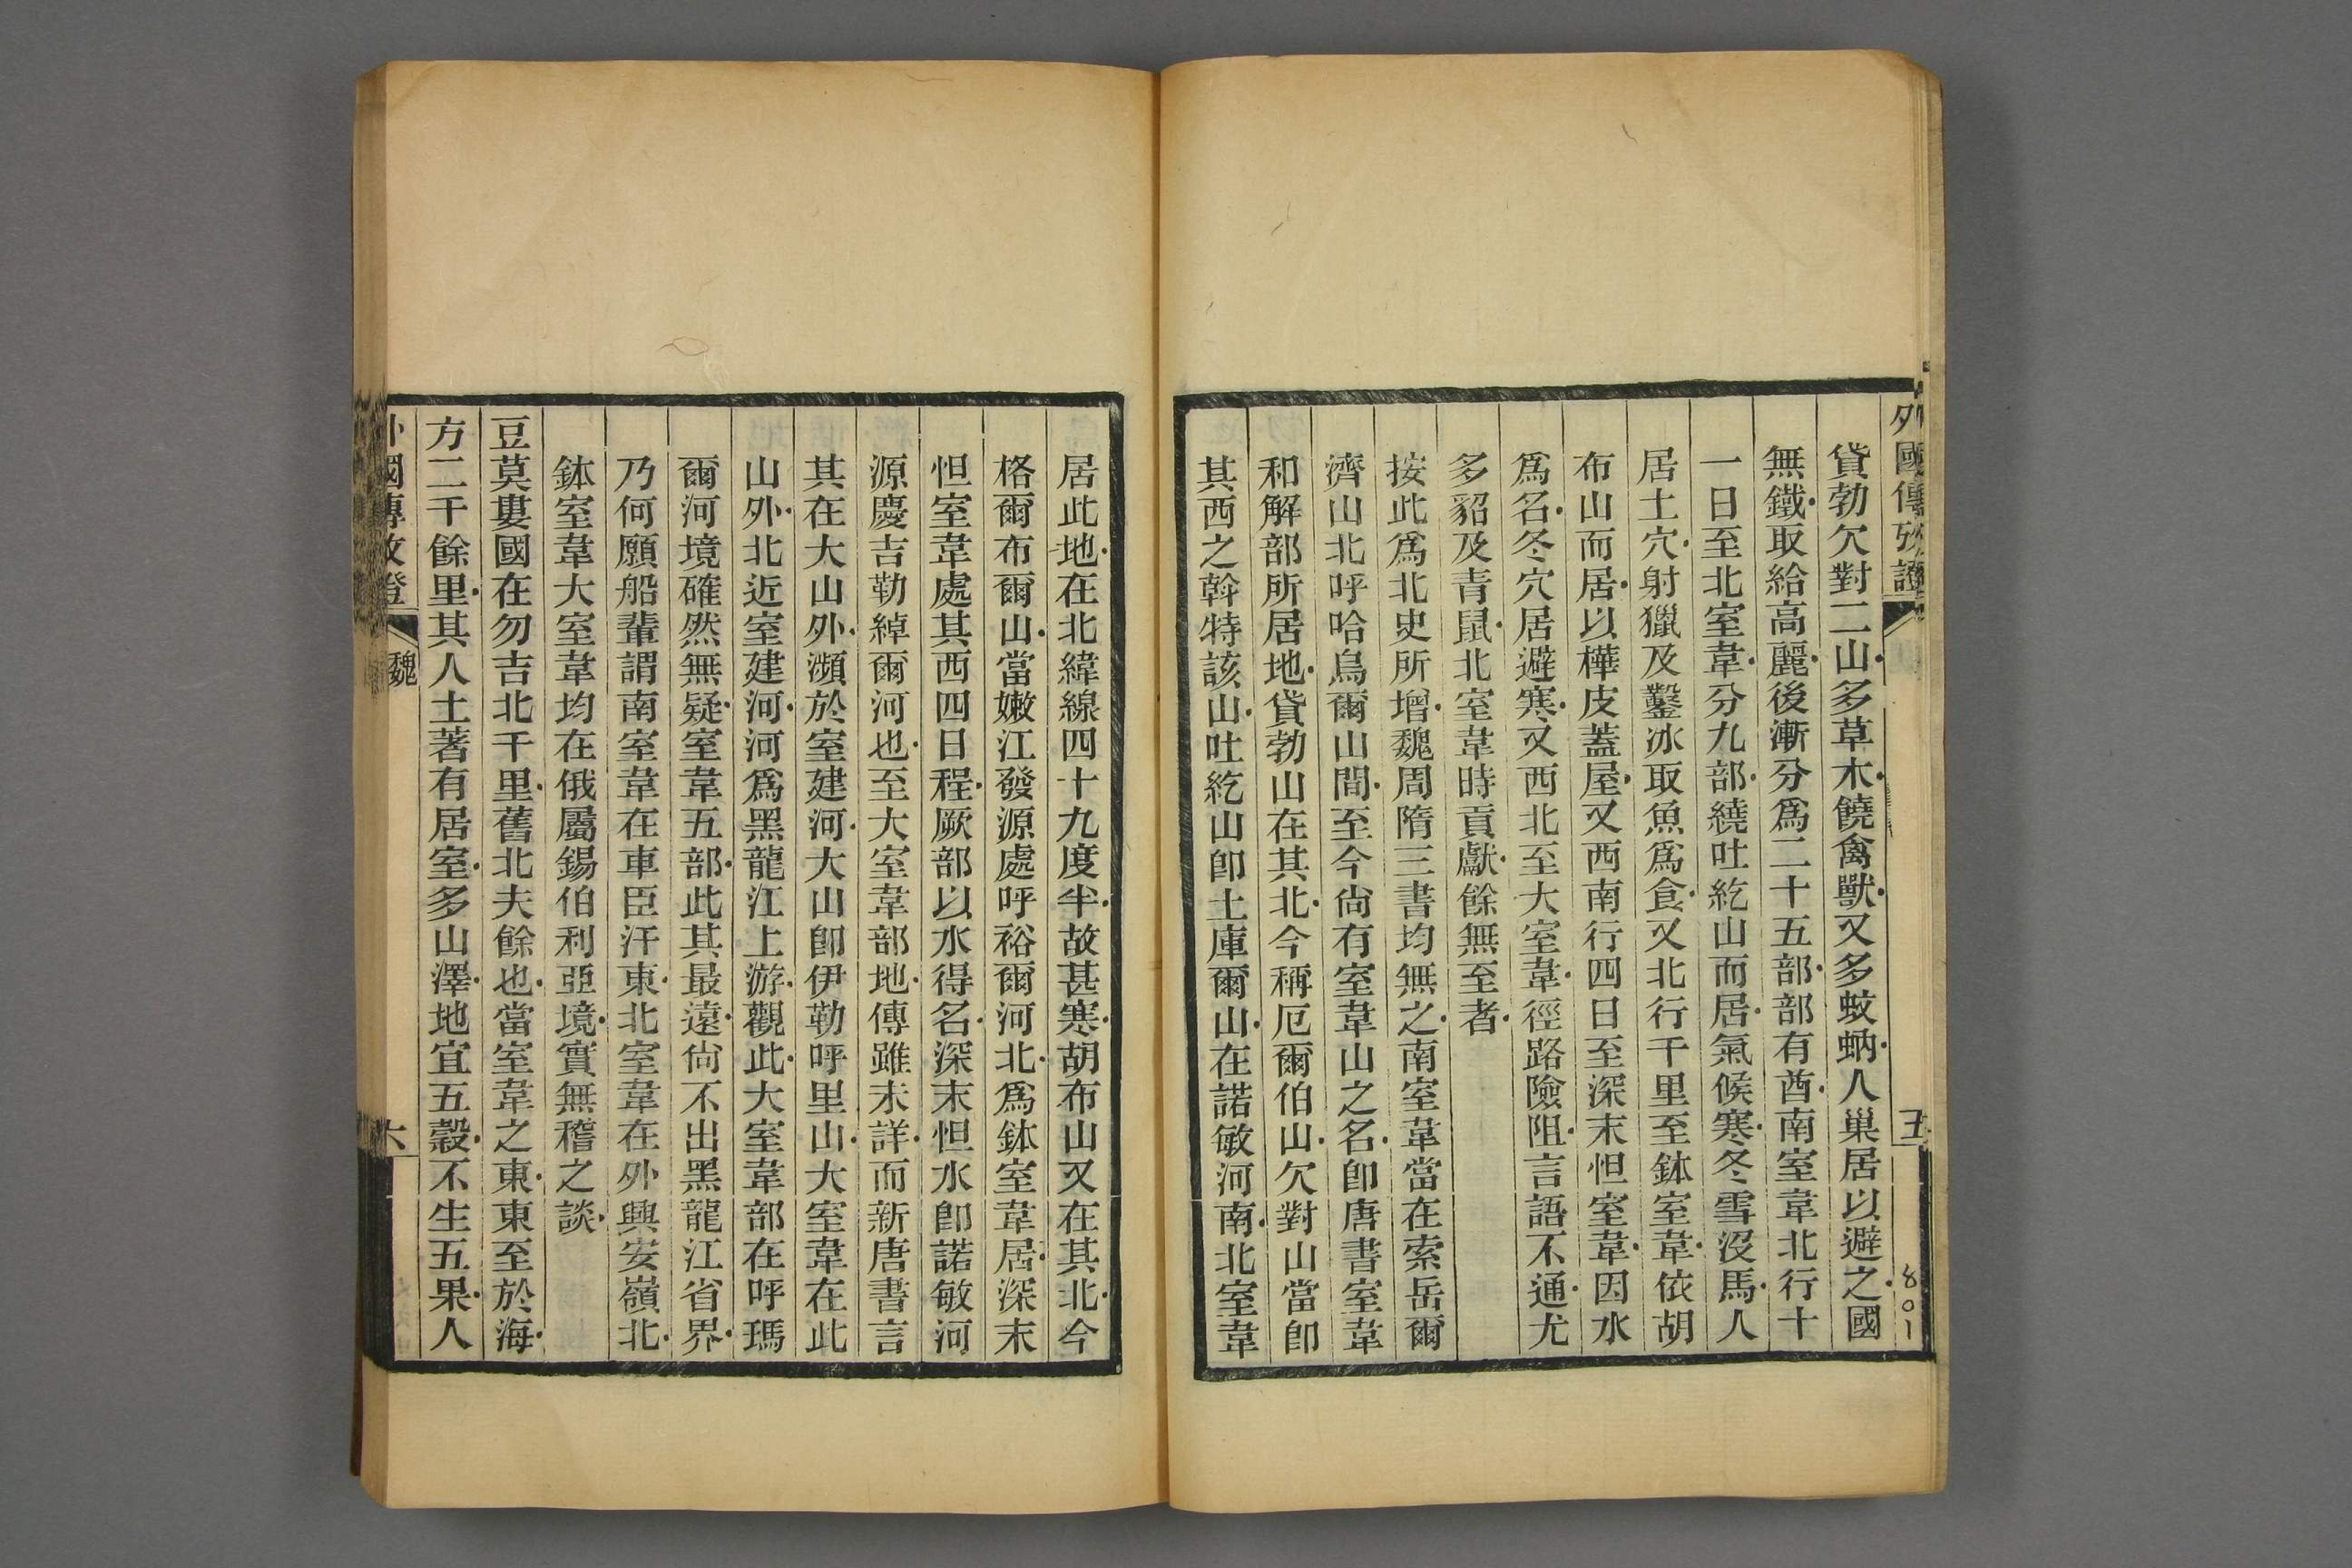 外國傳攷證
五
801
貸勃欠對二山多草木饒禽獸又多蚊蚋人巢居以避之國
無鐵取給高麗後漸分爲二十五部部有酋南室韋北行十
一日至北室韋分九部繞吐紇山而居氣候寒冬雪沒馬人
居土穴射獵及鑿冰取魚爲食又北行千里至鉢室韋依胡
布山而居以樺皮蓋屋又西南行四日至深末怛室韋因水
爲名冬穴居避寒又西北至大室韋徑路險阻言語不通尤
多貂及青鼠北室韋時貢獻餘無至者
按此爲北史所增魏周隋三書均無之南室韋當在索岳爾
濟山北呼哈烏爾山間至今尙有室韋山之名卽唐書室韋
和解部所居地貸勃山在其北今稱厄爾伯山欠對山當卽
其西之斡特該山吐紇山卽土庫爾山在諾敏河南北室韋
居此地在北緯線四十九度半故甚寒胡布山又在其北今
格爾布爾山當嫩江發源處呼裕爾河北爲鉢室韋居深末
怛室韋處其西四日程厥部以水得名深末怛水卽諾敏河
源慶吉勒綽爾河也至大室韋部地傳雖未詳而新唐書言
其在大山外瀕於室建河大山卽伊勒呼里山大室韋在此
山外北近室建河河爲黑龍江上游觀此大室韋部在呼瑪
爾河境確然無疑室韋五部此其最遠尙不出黑龍江省界
乃何願船輩謂南室韋在車臣汗東北室韋在外興安嶺北
鉢室韋大室韋均在俄屬錫伯利亞境實無稽之談
豆莫婁國在勿吉北千里舊北夫餘也當室韋之東東至於海
方二千餘里其人土著有居室多山澤地宜五穀不生五果人
外國傳攷證
魏
六